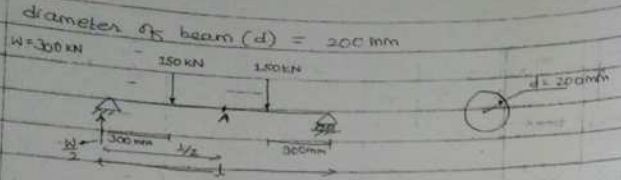 diameter of beam (d) = 200 mm
W=300 kN
150 kN 150 kN
d = 200mm
A
300mm 300mm
W/2
l/2
l